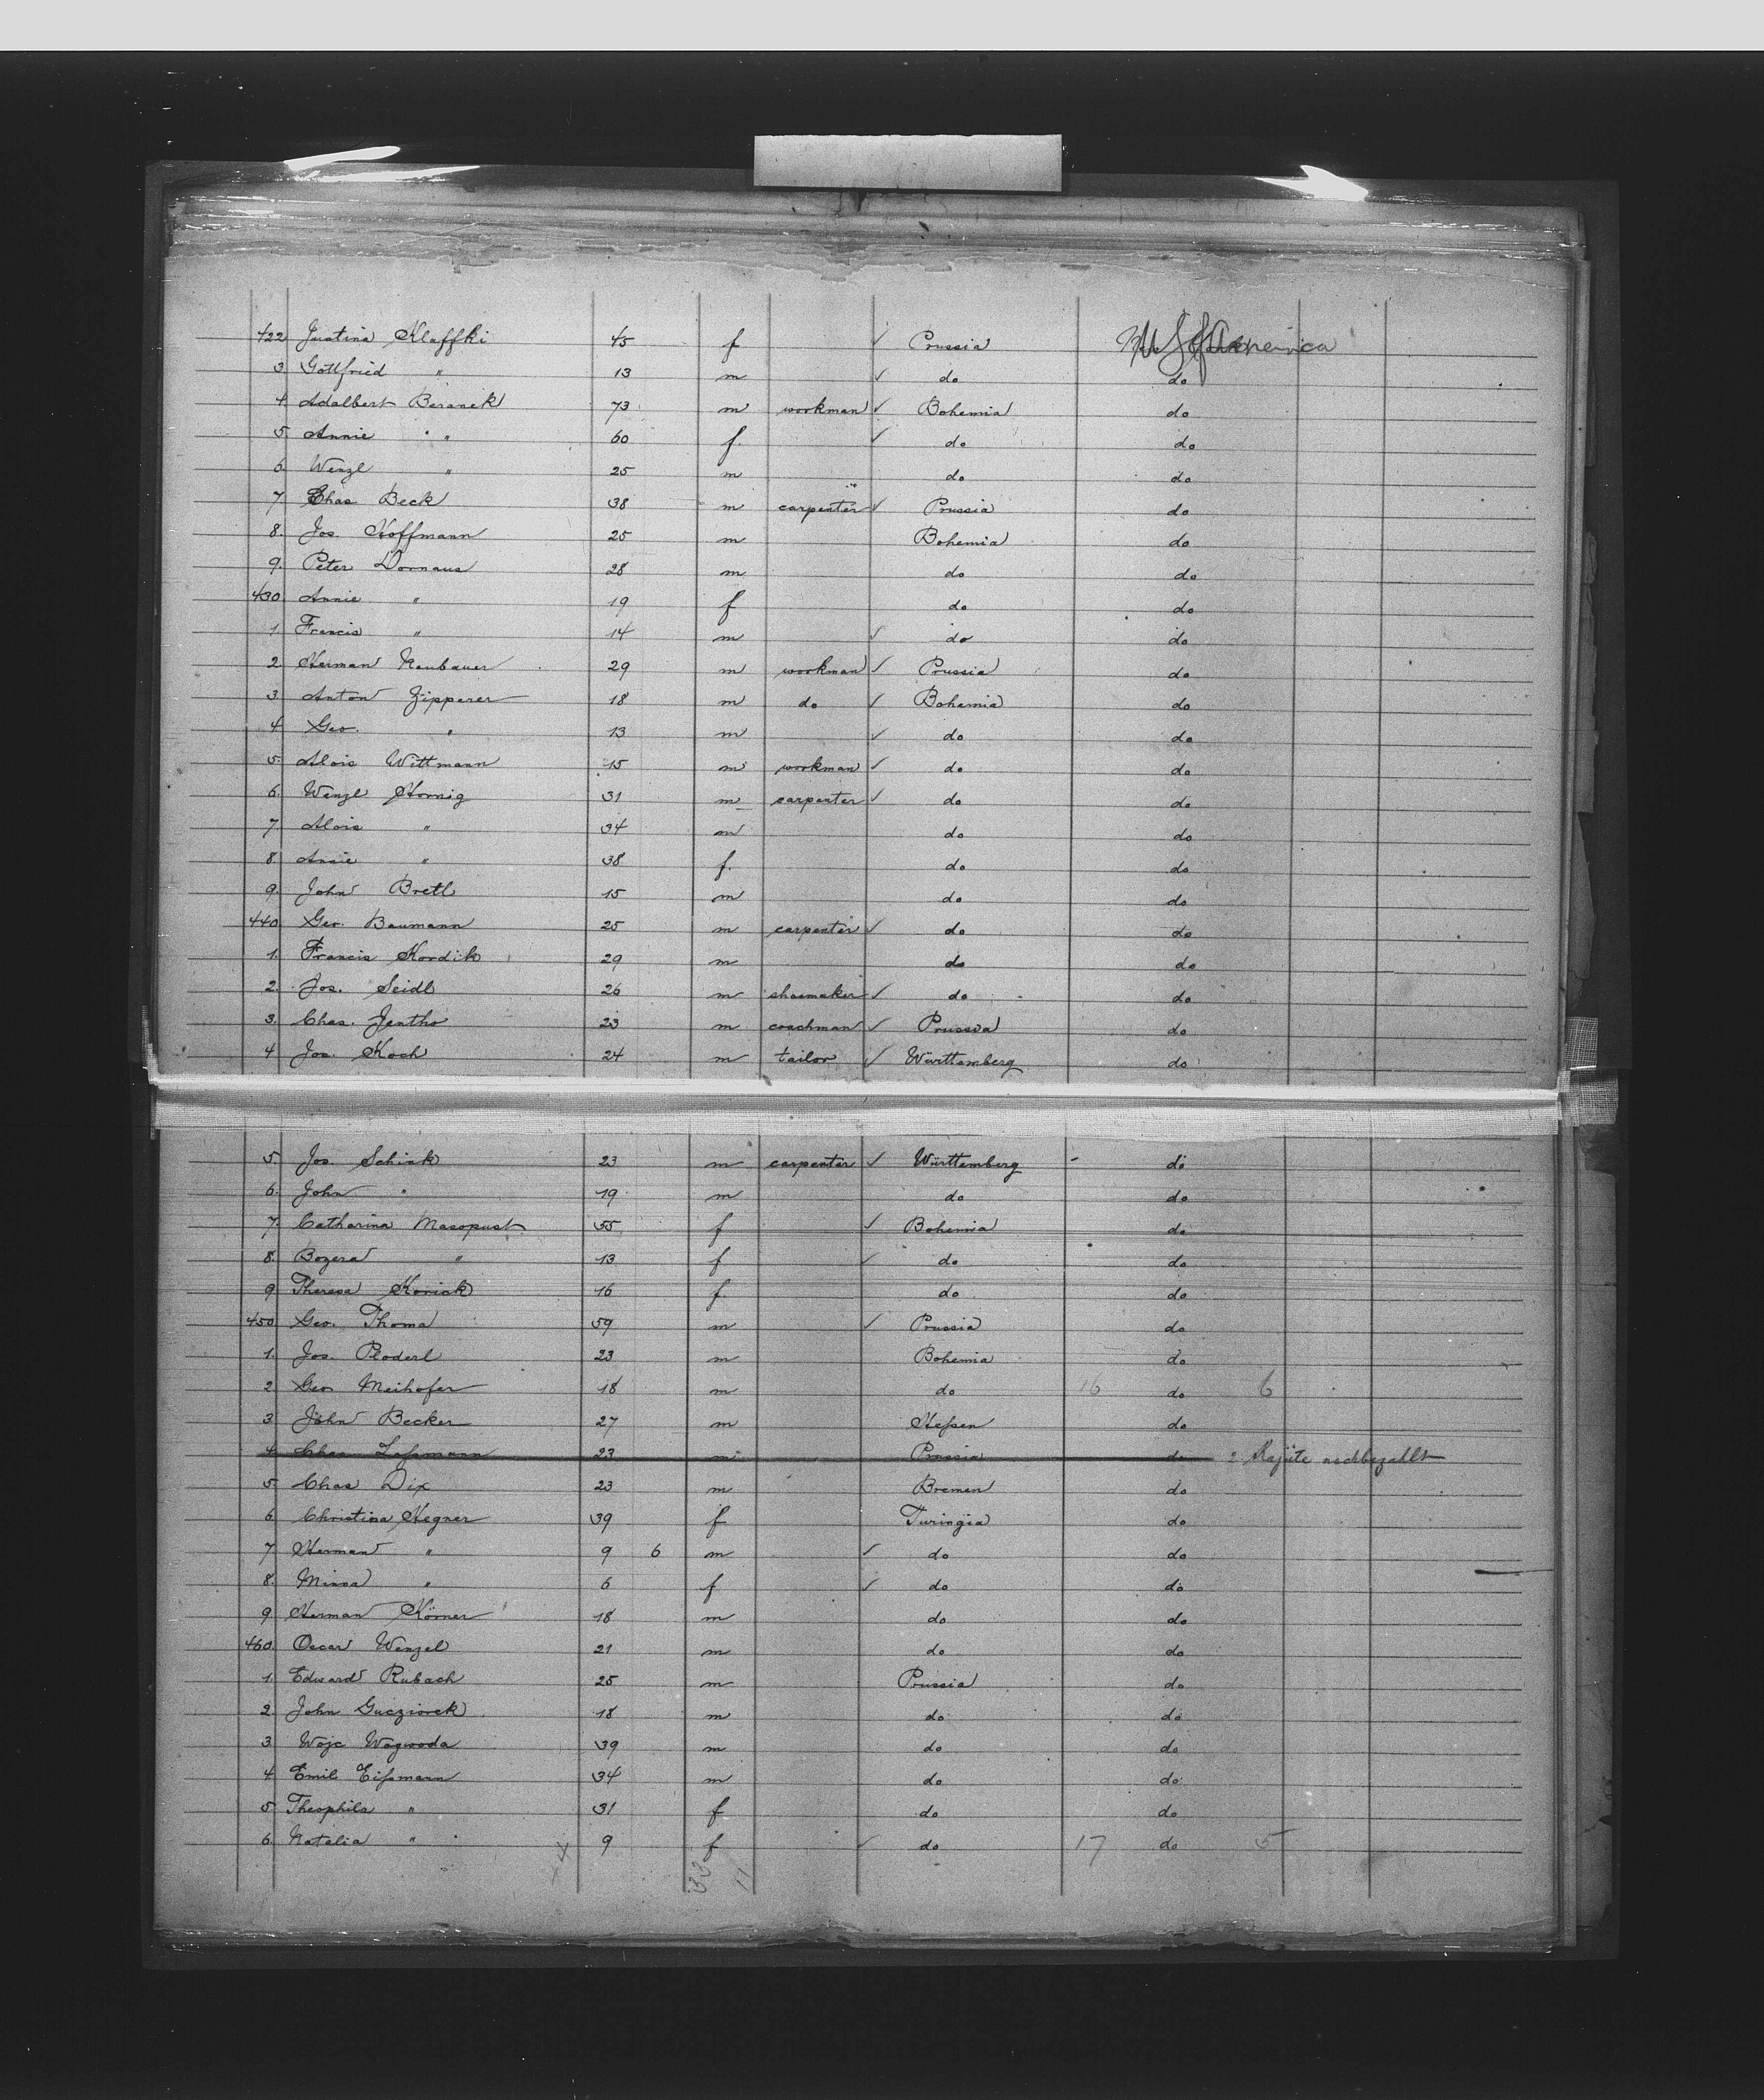 422 Justina Klaffki 45 f ✓ Prussia U S of America
3. Gottfried " 13 m ✓ do do
4. Adalbert Beranek 73 m workman ✓ Bohemia do
5. Annie " 60 f. ✓ do do
6. Wenzl " 25 m do do
7 Chas. Beck 38 m carpenter ✓ Prussia do
8. Jos. Hoffmann 25 m Bohemia do
9. Peter Dornaus 28 m do do
430 Annie " 19 f do do
1. Francis " 14 m ✓ do do
2 Herman Neubauer 29 m workman ✓ Prussia do
3. Anton Zipperer 18 m do ✓ Bohemia do
4 Geo. " 13 m ✓ do do
5. Alois Wittmann 15 m workman ✓ do do
6. Wenzl Hornig 31 m carpenter ✓ do do
7. Alois " 34 m do do
8. Annie " 38 f. do do
9. John Bretl 15 m do do
440 Geo. Baumann 25 m carpenter ✓ do do
1. Francis Kordik 29 m do do
2. Jos. Seidl 26 m shoemaker ✓ do do
3. Chas. Jentho 23 m coachman ✓ Prussia do
4 Jos. Koch 24 m tailor ✓ Württemberg do
5. Jos. Schink 23 m carpenter ✓ Württemberg do
6. John " 19 m do do
7. Catharina Masopust 55 f ✓ Bohemia do
8. Bozena " 13 f ✓ do do
9 Theresa Koriak 16 f. do do
450 Geo. Thoma 59 m ✓ Prussia do
1. Jos. Ploderl 23 m Bohemia do
2 Geo Meihofer 18 m do 16 do 6
3. John Becker 27 m Hessen do
4 Chas. Lassmann 23 m Prussia do " Kajüte nachbezahlt
5. Chas Dix 23 m Bremen do
6. Christina Hegner 39 f Turingia do
7 Herman " 9 6 m ✓ do do
8. Minna " 6 f ✓ do do
9 Herman Körner 18 m do do
460. Oscar Wenzel 21 m do do
1. Edward Rubach 25 m Prussia do
2. John Gucziorek 18 m do do
3. Wojc Wogwoda 39 m do do
4. Emil Eissmann 34 m do do
5 Theophila " 31 f do do
6. Natalia " 9 f ✓ do 17 do 5
4 33 11